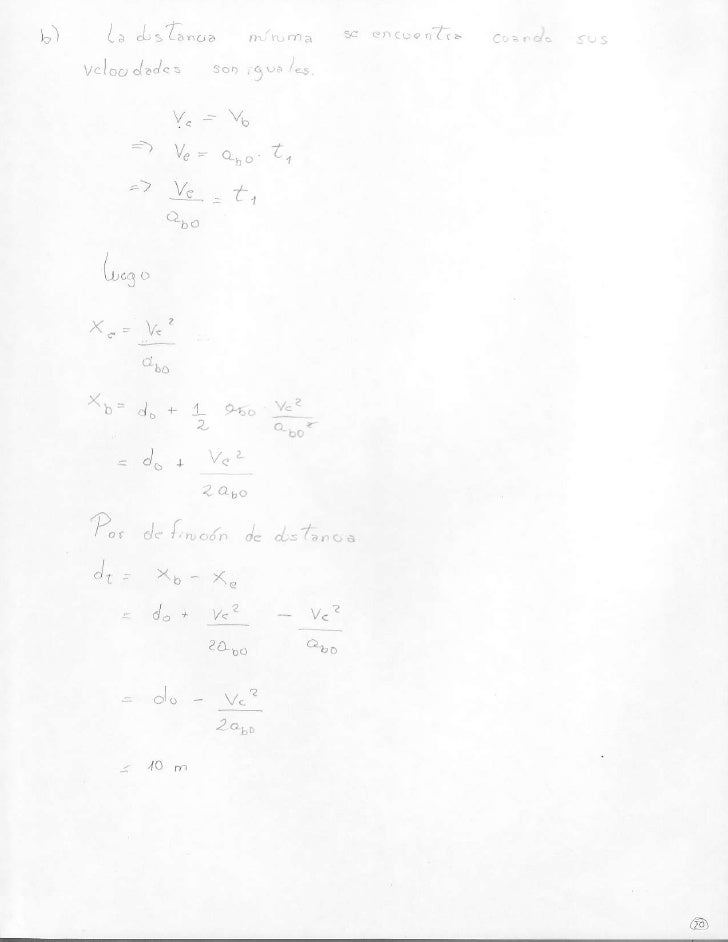 b) La distancia mínima se encuentra cuando sus
velocidades son iguales.
Ve = Vb
=> Ve = ab0 · t1
=> Ve / ab0 = t1
luego
Xe = Ve² / ab0
Xb = d0 + 1/2 ab0 Ve² / ab0²
= d0 + Ve² / 2ab0
Por definición de distancia
dt = Xb - Xe
= d0 + Ve² / 2ab0 - Ve² / ab0
= d0 - Ve² / 2ab0
= 10 m
20